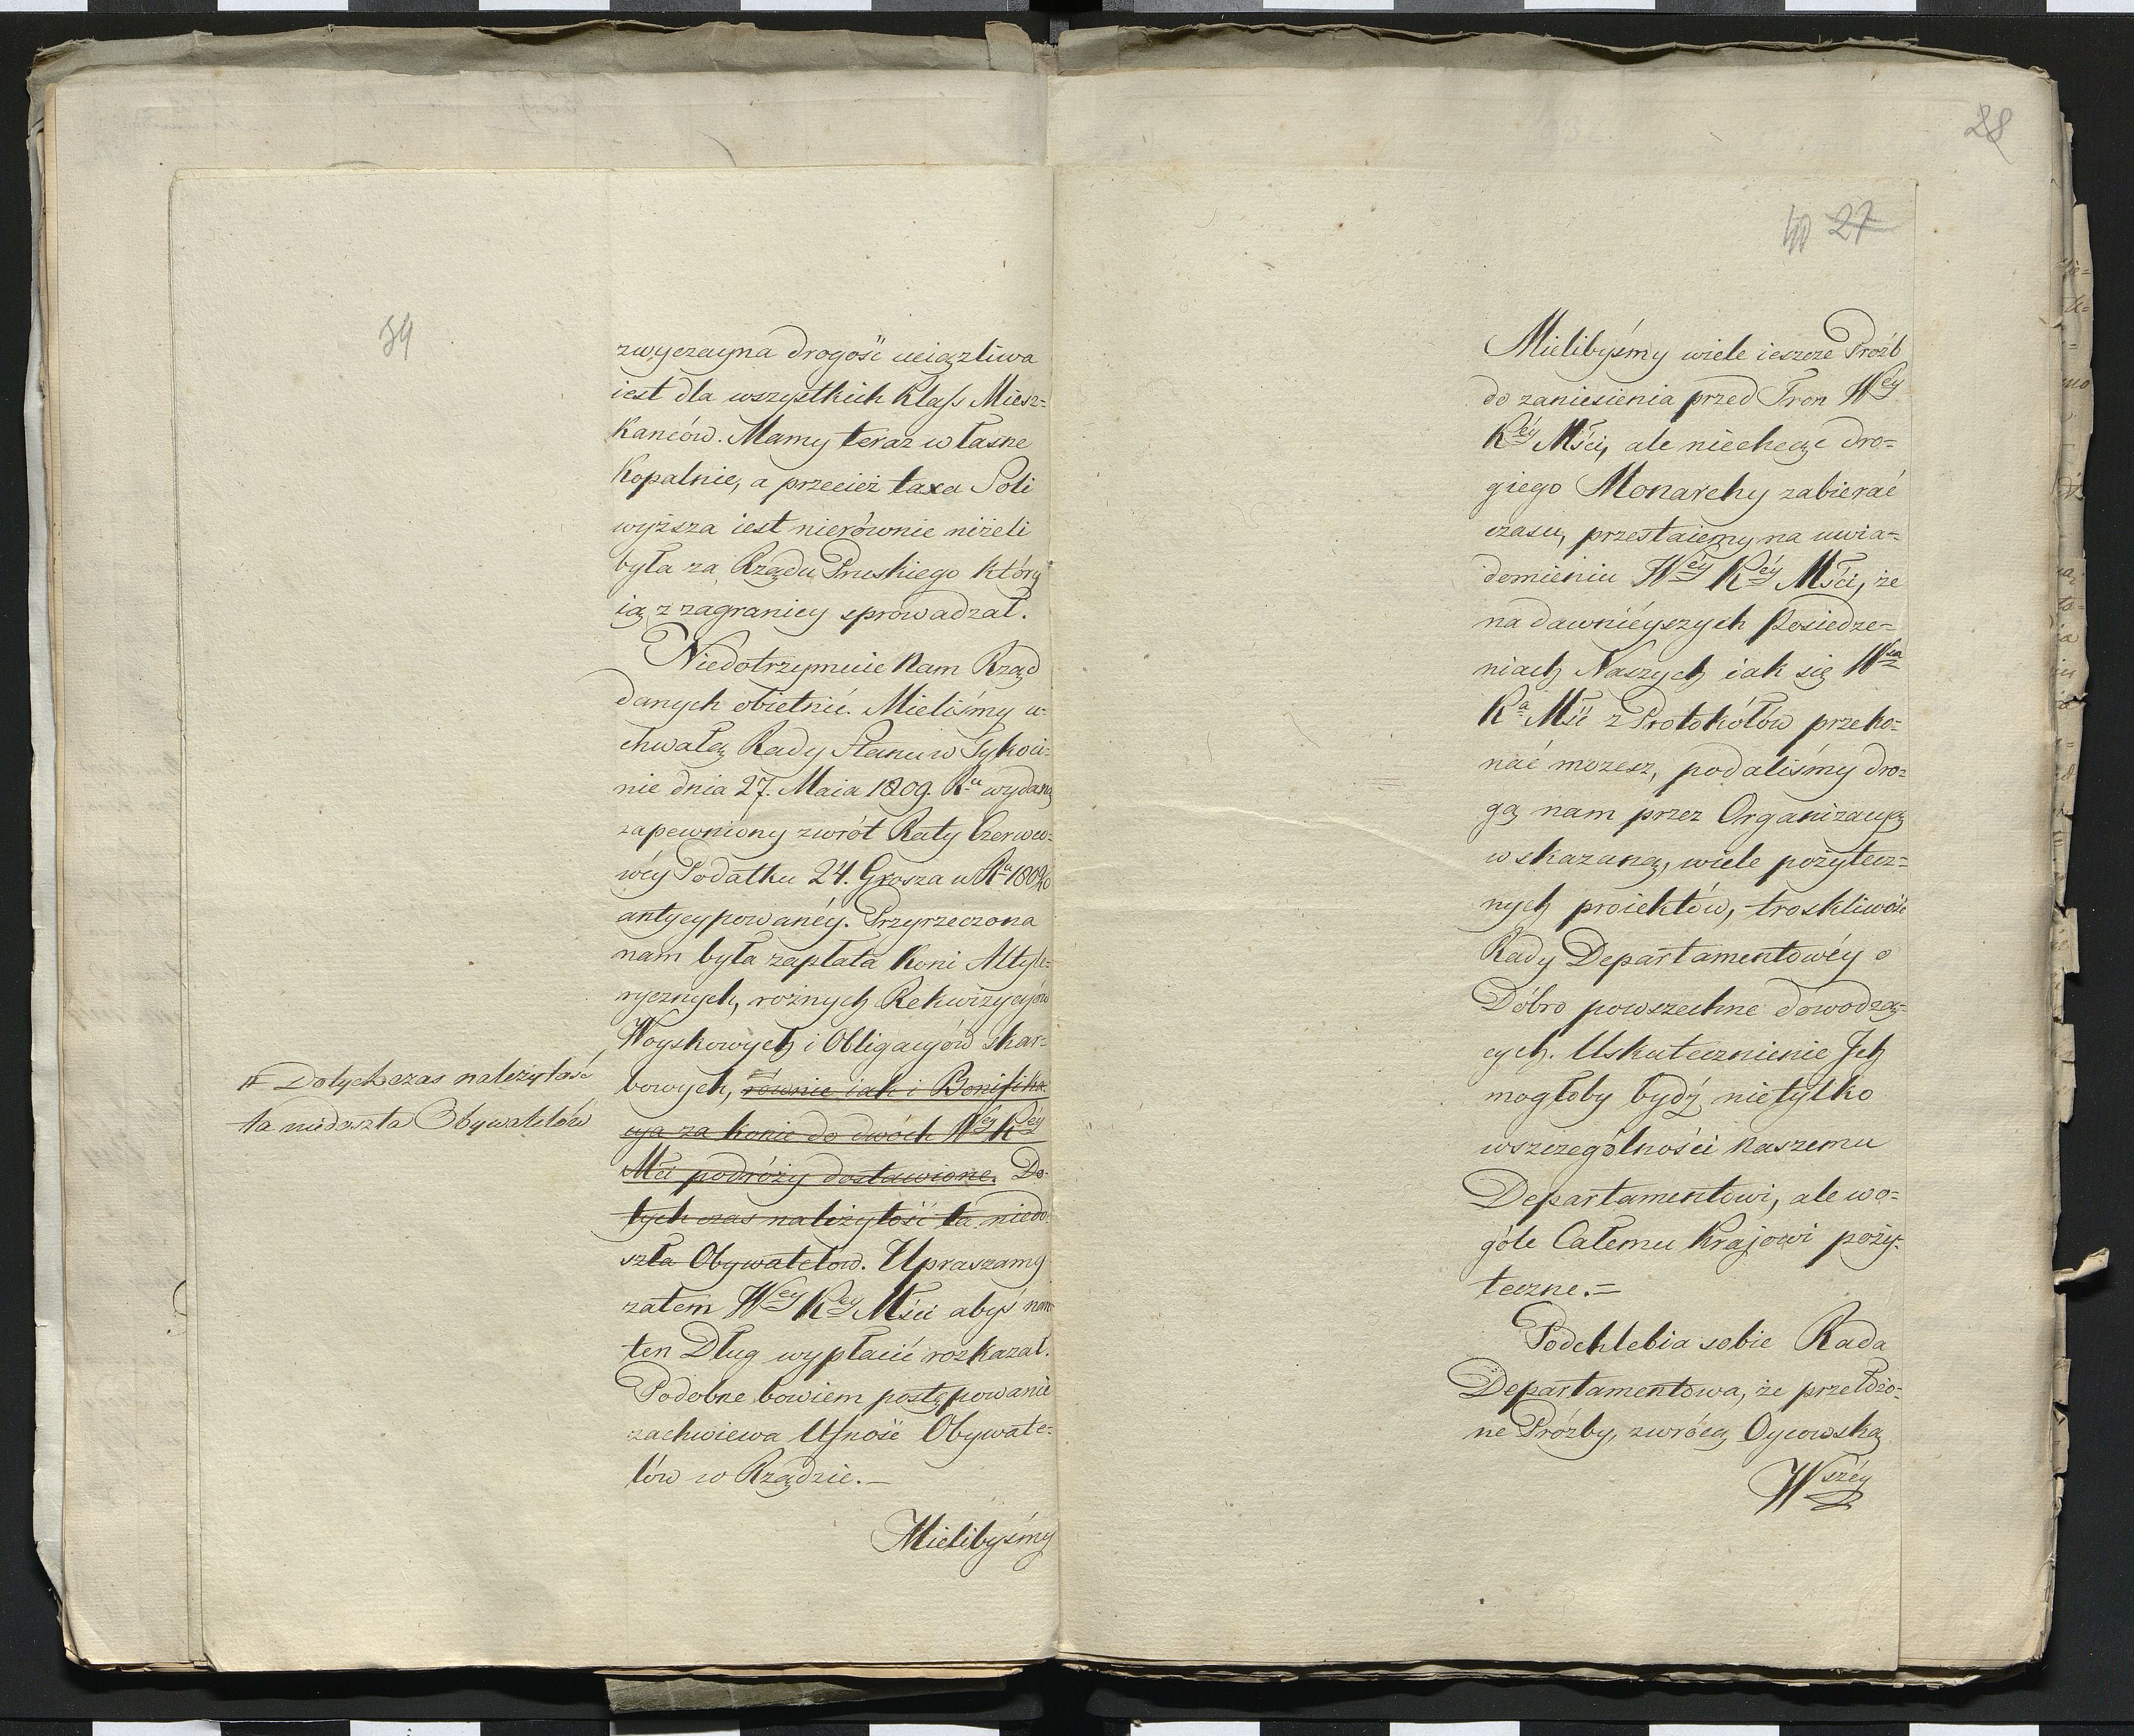 39
zwyczayna drogość uciązliwa
iest dla wszystkich Klass Miesz=
kańców. Mamy teraz własne
Kopalnie, a przecież taxa Soli
wyższa iest nierównie niżeli
była za Rządu Pruskiego który
ią z zagranicy sprowadzał.
Niedotrzymuie Nam Rząd
danych obietnic. Mieliśmy u=
chwałą Rady Stanu w Tykoci=
nie dnia 27. Maia 1809. Ru wydaną
zapewniony zwrót Raty Czerwco=
wéy Podatku 24. Grosza u Ru 1809/10
antycypowanéy. Przyrzeczona
nam była zapłata Koni Altyle=
rycznych, rożnych Rekwizycyiów
Woyskowych i Obligacyiów skar=
bowych, # rownie iak i Bonifika
cya za konie do dwóch Wéy Kéy
Mci podróży dostawione. Do=
tych czas należytość ta niedo=
szła Obywatelów. Upraszamy
zatém Wey Kéy Mści abyś nam
ten Dług wypłacić rozkazał.
Podobne bowiem postępowanie
zachwiewa Ufność Obywate=
lów w Rządzie.—
Mielibyśmy
# Dotychczas należytość
ta niedoszła Obywatelów
28
40 27
Mielibyśmy wiele ieszcze Próźb
do zaniesienia przed Tron Wéy
Kéy Mści, ale niechcąc dro=
giego Monarchy zabierać
czasu, przestaiemy na uwia=
domieniu Wéy Kéy Mści, że
na dawniéyszych Posiedze=
niach Naszych iak się Wsza
Ka Mść z Protokółów przeko=
nać mozesz, podaliśmy dro=
gą nam przez Organizacyą
wskazaną, wiele pożytecz=
nych proiektów, troskliwość
Rady Departamentowéy o
Dóbro powszechne dowodzą=
cych. Uskutecznienie Jch
mogłoby bydź nietylko
wszczególności Naszemu
Departamentowi, ale wo=
góle Całemu Krajowi poży=
teczne.=
Podchlebia sobie Rada
Departamentowa, że przełożo=
ne Próźby, zwrócą Oycowską
Wszéy